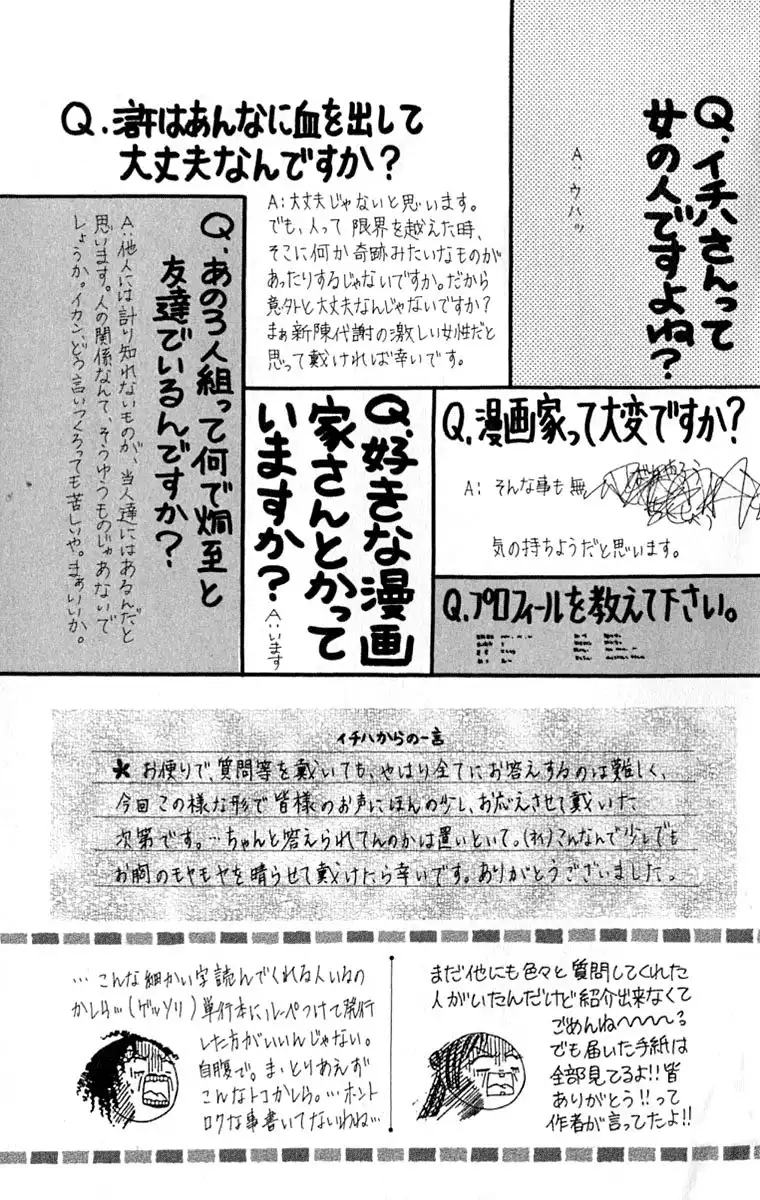 Q.イチハさんって
女の人ですよね?
A:ウハッ
Q.滸はあんなに血を出して
大丈夫なんですか?
A:大丈夫じゃないと思います。
でも、人って限界を越えた時、
そこに何か奇跡みたいなものが
あったりするじゃないですか。だから
意外と大丈夫なんじゃないですか?
まぁ新陳代謝の激しい女性だと
思って戴ければ幸いです。
Q.あの3人組って何で炯至と
友達でいるんですか?
A:他人には計り知れないものが、当人達にはあるんだと
思います。人の関係なんて、そうゆうものじゃあないで
しょうか。イカン、どう言いつくろっても苦しいや。まぁいいか。
Q.漫画家って大変ですか?
A:そんな事も無
気の持ちようだと思います。
Q.好きな漫画
家さんとかって
いますか?
A:います
Q.プロフィールを教えて下さい。
イチハからの一言
★お便りで、質問等を戴いても、やはり全てにお答えするのは難しく、
今回この様な形で皆様のお声にほんの少し、お応えさせて戴いた
次第です。…ちゃんと答えられてんのかは置いといて。(オイ)こんなんで少しでも
お胸のモヤモヤを晴らせて戴けたら幸いです。ありがとうございました。
まだ他にも色々と質問してくれた
人がいたんだけど紹介出来なくて
ごめんね〜〜〜〜?
でも届いた手紙は
全部見てるよ!!皆
ありがとう!!って
作者が言ってたよ!!
…こんな細かい字読んでくれる人いるの
かしら…(ゲッソリ)単行本にルーペつけて発行
した方がいいんじゃない。
自腹で。ま、とりあえず
こんなトコかしら。…ホント
ロクな事書いてないわね…